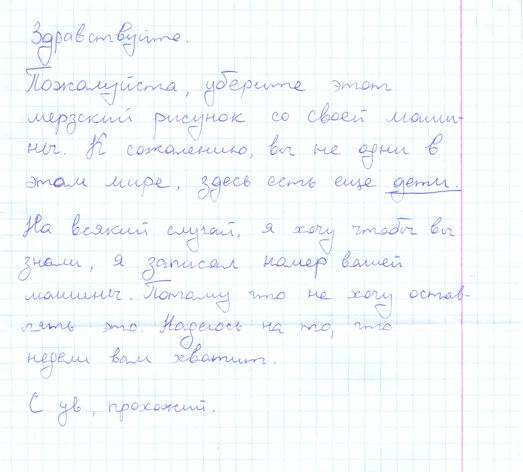 Здравствуйте.
Пожалуйста, уберите этот
мерзский рисунок со своей маши-
ны. К сожалению, вы не одни в
этом мире, здесь есть еще дети.
На всякий случай, я хочу чтобы вы
знали, я записал номер вашей
машины. Потому что не хочу остав-
лять это. Надеюсь на то, что
недели вам хватит.
С ув., прохожий.